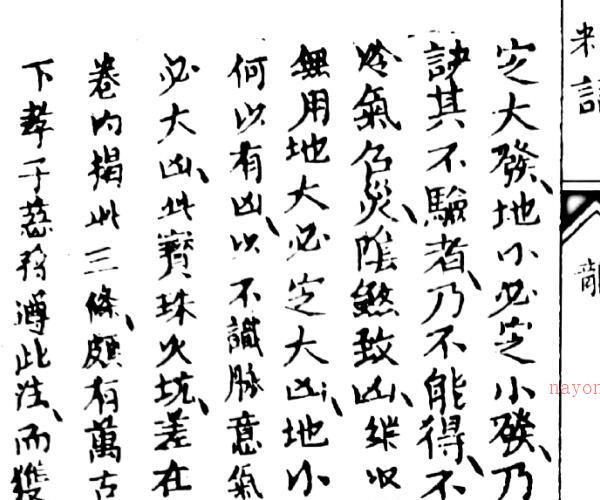 朱訣
龍
定大發、地小必定小發、乃
訣其不驗者、乃不能得、不
冷氣召災、陰煞致凶、縱収
無用地大必定大凶、地小
何以有凶、以不識脉意氣
必大凶、此寶珠火坑、差在
卷内揭此三條、頗有萬古
下孝子慈孫遵此法、而獲
nayon